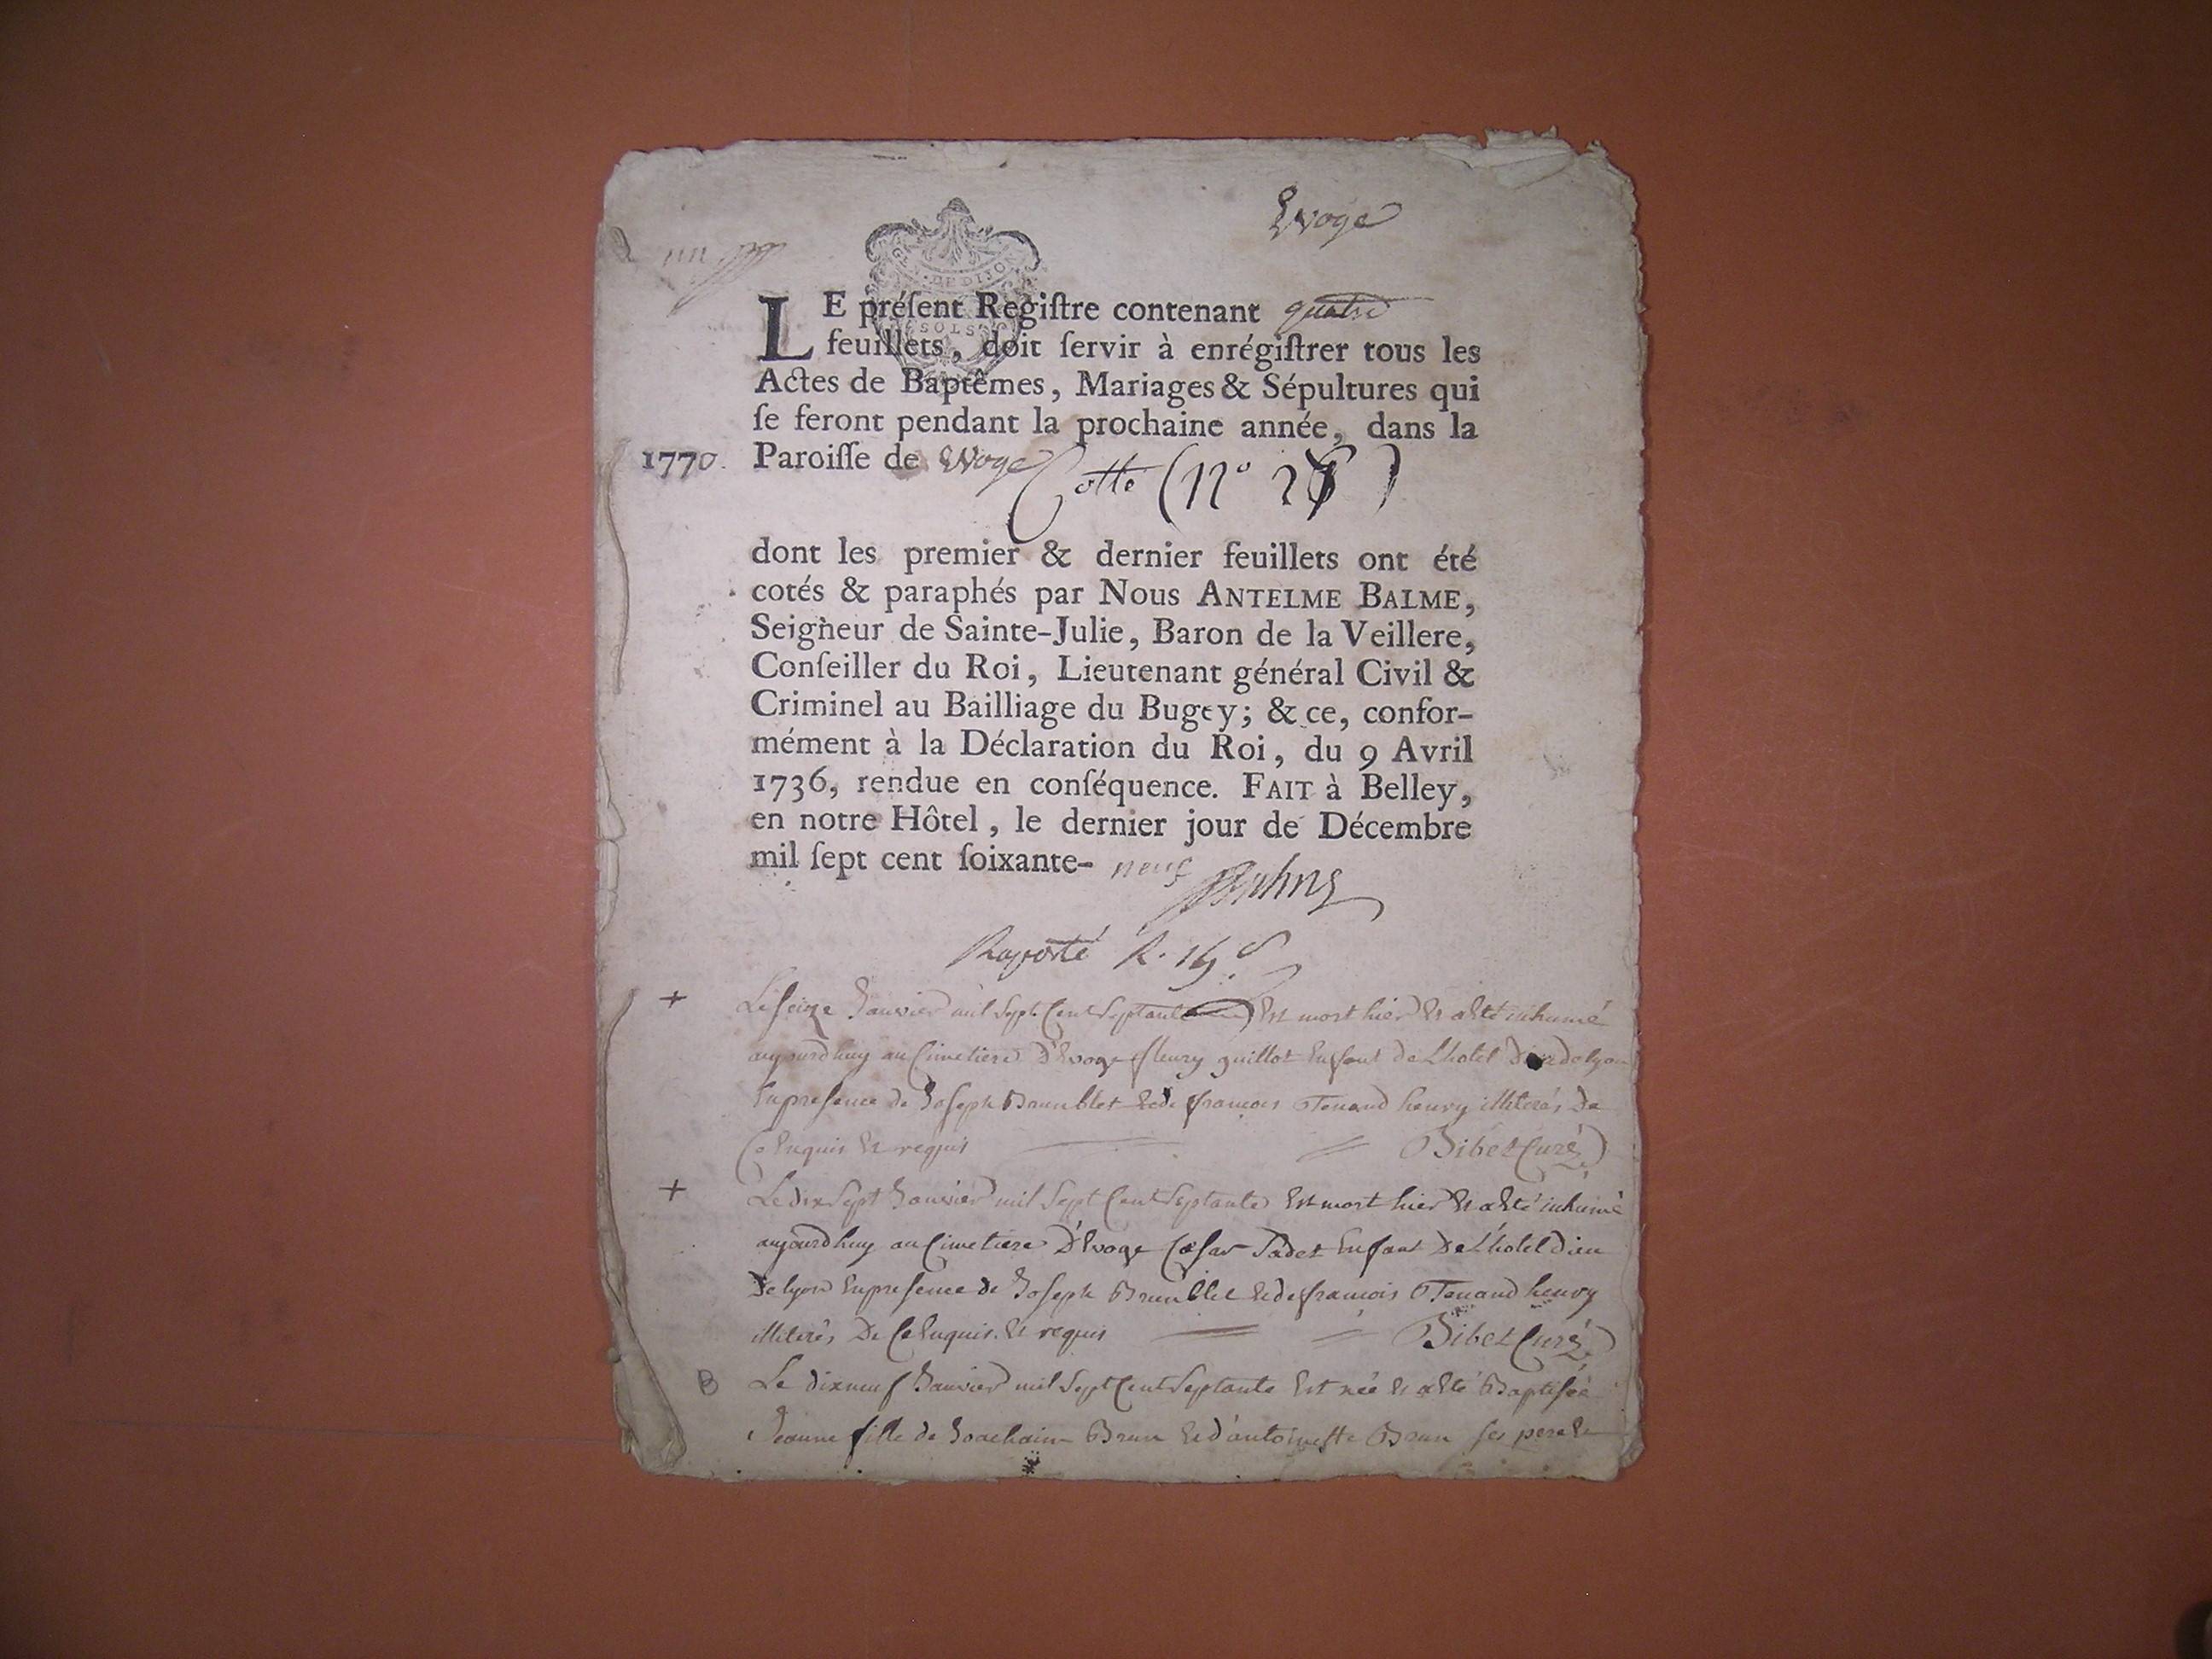 Evoge
GEN. DE DIJON
SOLS
LE préſent Regiſtre contenant quatre
feuillets, doit ſervir à enrégiſtrer tous les
Actes de Baptêmes, Mariages & Sépultures qui
ſe feront pendant la prochaine année, dans la
1770. Paroiſſe de Evoge
Cotte (N° 26)
dont les premier & dernier feuillets ont été
cotés & paraphés par Nous ANTELME BALME,
Seigneur de Sainte-Julie, Baron de la Veillere,
Conſeiller du Roi, Lieutenant général Civil &
Criminel au Bailliage du Bugey; & ce, confor-
mément à la Déclaration du Roi, du 9 Avril
1736, rendue en conſéquence. FAIT à Belley,
en notre Hôtel, le dernier jour de Décembre
mil ſept cent ſoixante- neuf
Raporté R.
+ Le seize Janvier mil Sept Cent Septante Est mort hier Et a Eté inhumé
aujourdhuy au Cimetiere D'Evoge fleury guillot Enfant De L'hotel Dieu de lyon
En presence de Joseph Brunblet Et de francois Tenand henry illiterés De
Ce Enquis Et requis Bibet Curé
+ Le dix Sept Janvier mil Sept Cent Septante Est mort hier Et a Eté inhumé
aujourdhuy au Cimetiere D'Evoge Cæsar Jadet Enfant De L'hotel Dieu
De lyon En presence de Joseph Brunblet Et de francois Tenand henry
illiterés De Ce Enquis Et requis Bibet Curé
B Le dixneuf Janvier mil Sept Cent Septante Est née Et a Eté Baptisée
Jeanne fille de Joachaim Brun Et d'antoinette Brun ses pere Et